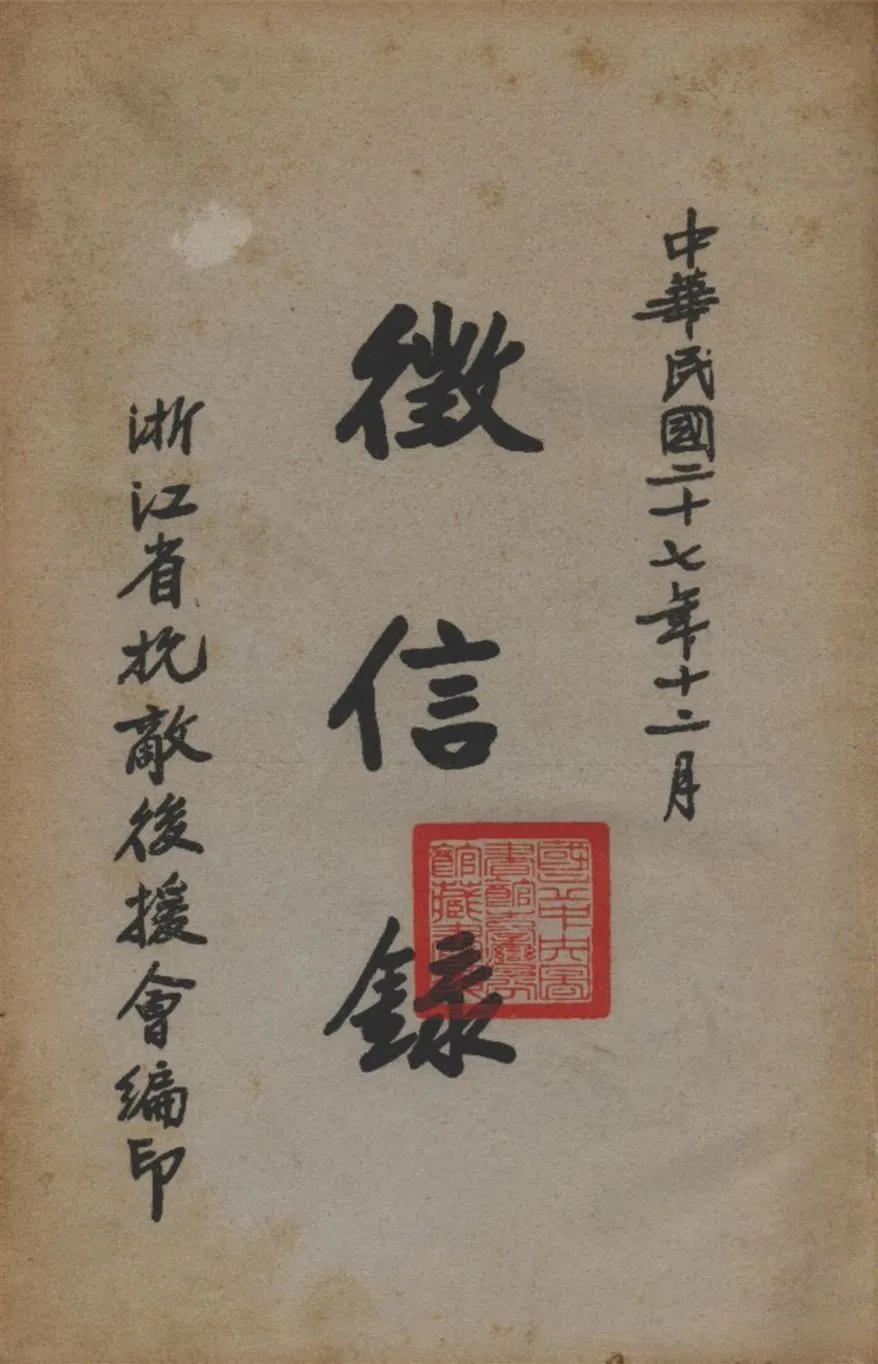 中華民國二十七年十二月
徵信錄
國立中央圖
書館臺灣分
館藏書
浙江省抗敵後援會編印